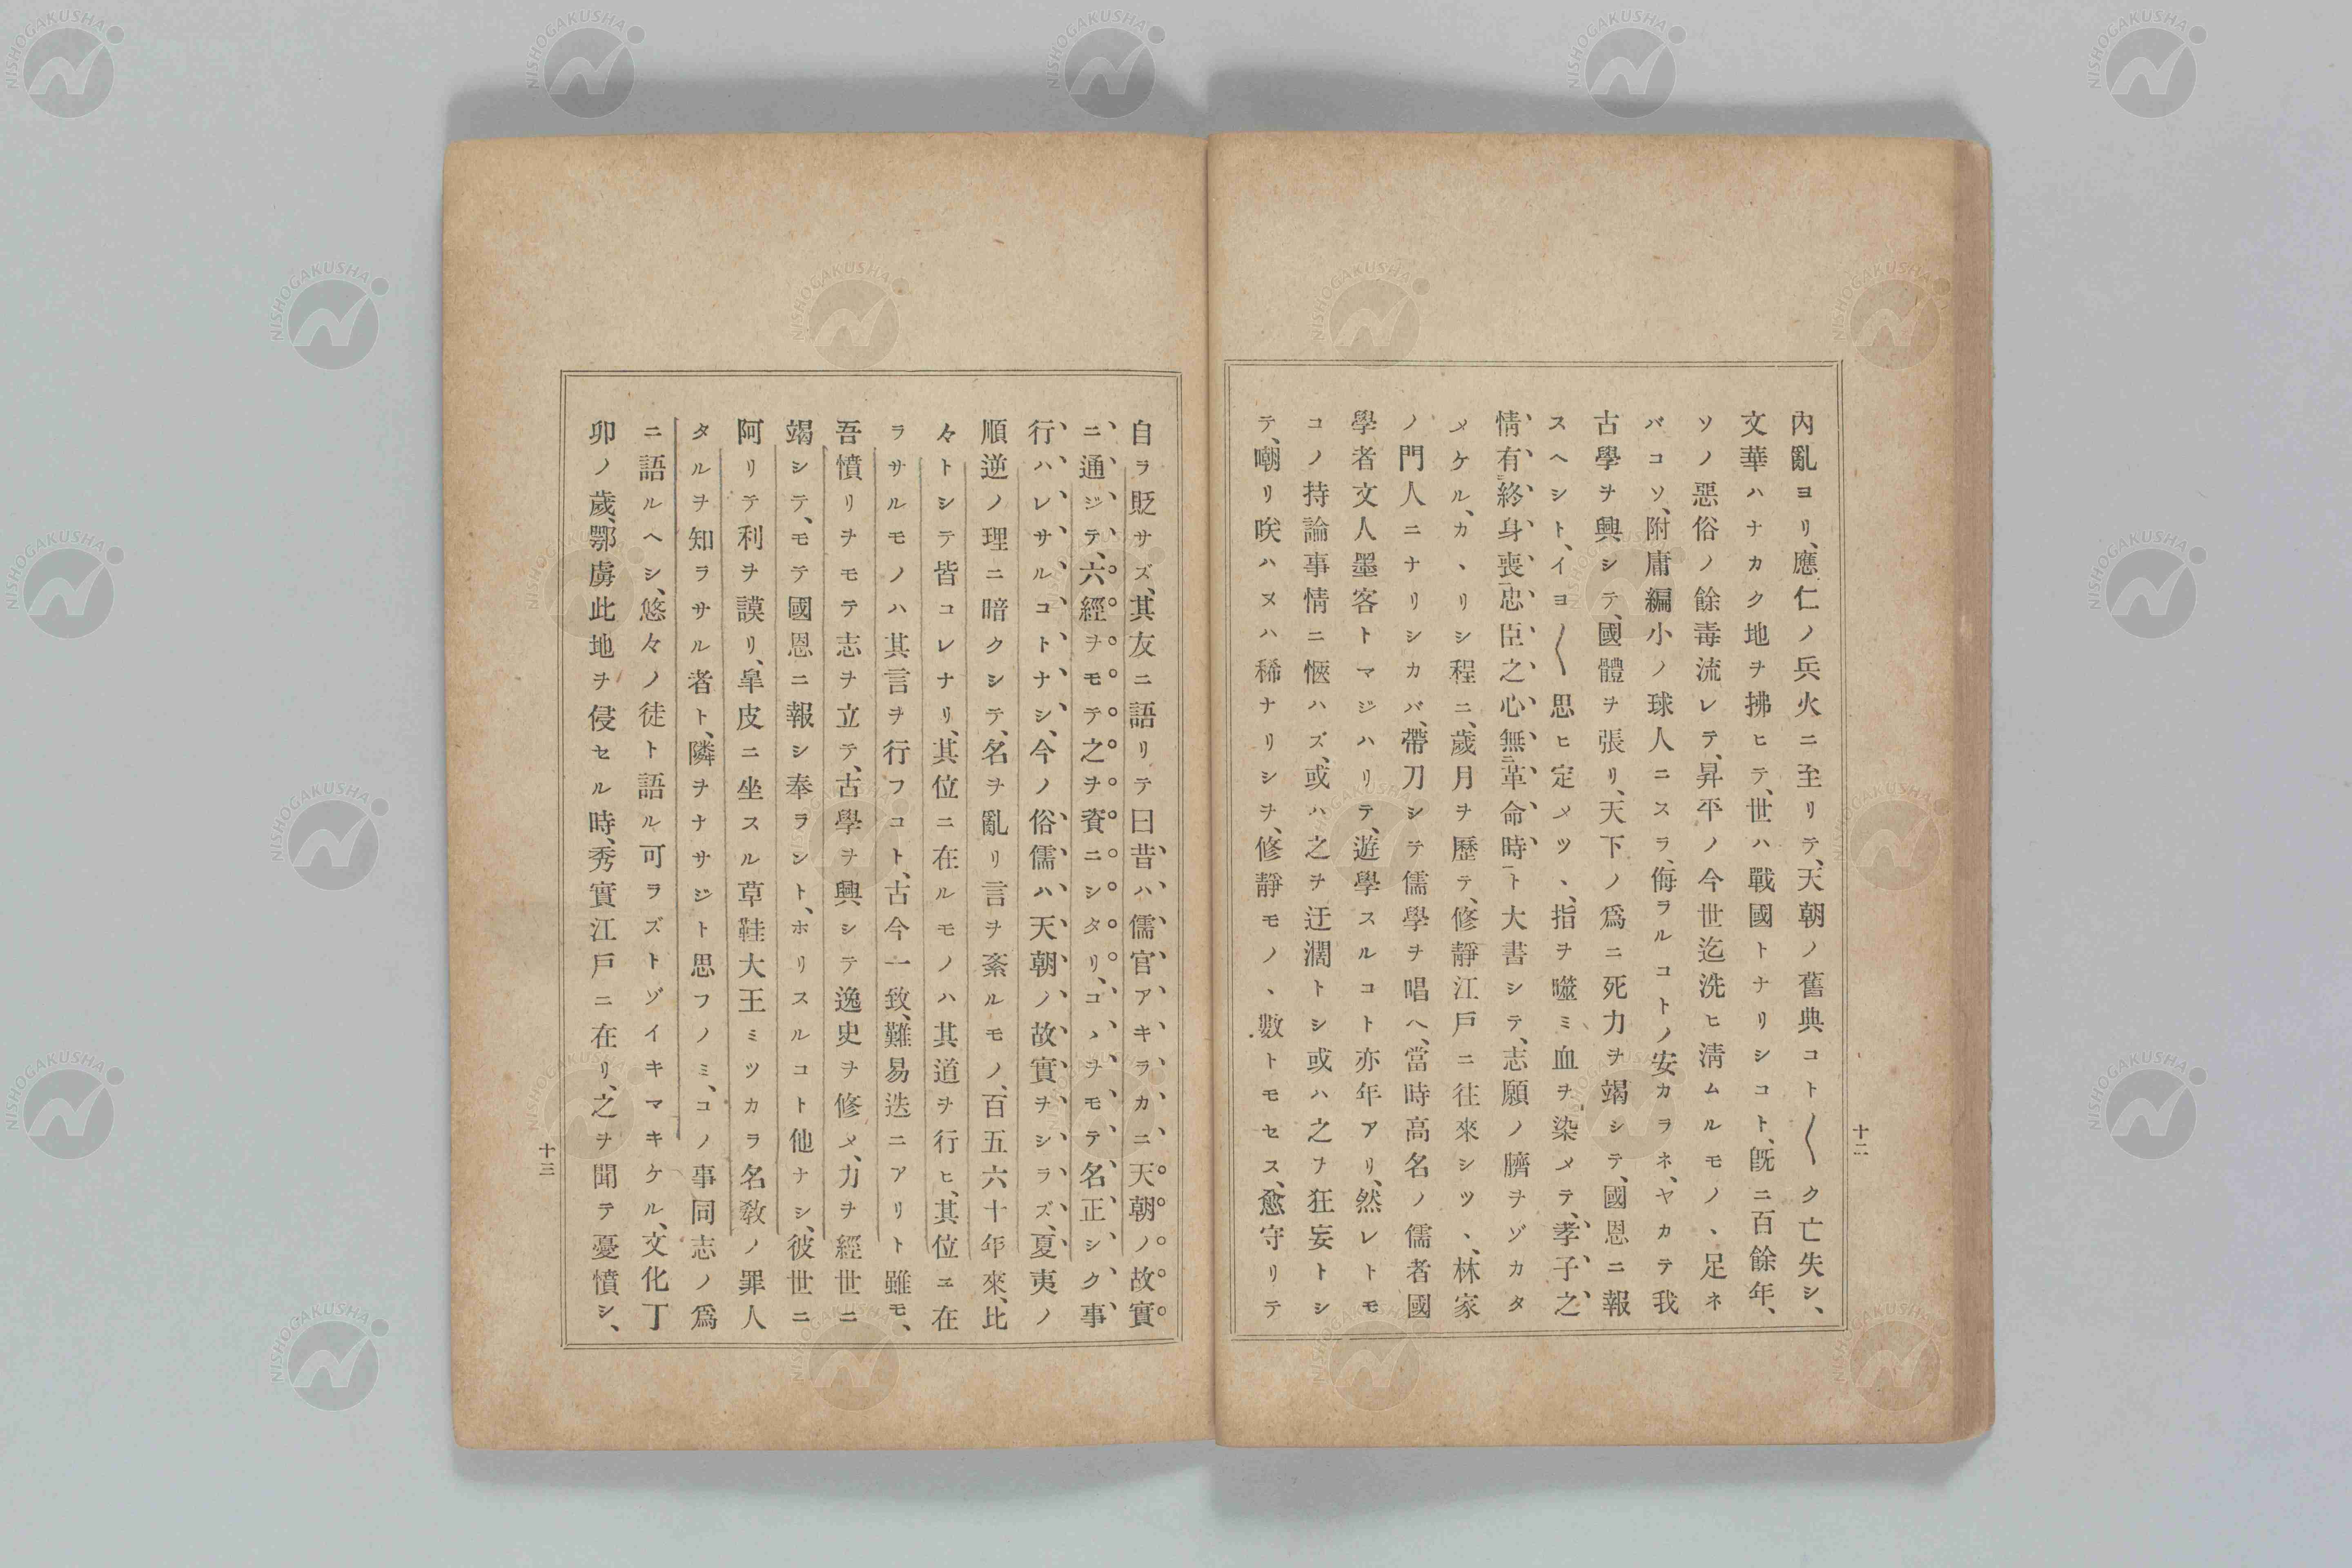 內亂ヨリ、應仁ノ兵火ニ至リテ、天朝ノ舊典コト〱ク亡失シ、
文華ハナカク地ヲ拂ヒテ、世ハ戰國トナリシコト、既ニ百餘年、
ソノ惡俗ノ餘毒流レテ、昇平ノ今世迄洗ヒ淸ムルモノ、足ネ
バコソ、附庸編小ノ球人ニスラ、侮ラルコトノ安カラネ、ヤカテ我
古學ヲ興シテ、國體ヲ張リ、天下ノ爲ニ死力ヲ竭シテ、國恩ニ報
スヘシト、イヨ〱思ヒ定メツヽ、指ヲ噬ミ血ヲ染メテ、孝子之
情有終身喪忠臣之心無革命時ト大書シテ、志願ノ臍ヲゾカタ
メケル、カヽリシ程ニ、歲月ヲ歷テ、修靜江戶ニ往來シツヽ、林家
ノ門人ニナリシカバ、帶刀シテ儒學ヲ唱ヘ、當時高名ノ儒者國
學者文人墨客トマジハリテ、遊學スルコト亦年アリ、然レトモ
コノ持論事情ニ愜ハズ、或ハ之ヲ迂濶トシ或ハ之ヲ狂妄トシ
テ、嘲リ咲ハヌハ稀ナリシヲ、修靜モノヽ數トモセス、愈守リテ
十二
自ヲ貶サズ、其友ニ語リテ曰昔ハ儒官アキラカニ天朝ノ故實
ニ通ジテ、六經ヲモテ之ヲ賚ニシタリ、コヽヲモテ名正シク事
行ハレサルコトナシ、今ノ俗儒ハ天朝ノ故實ヲシラズ、夏夷ノ
順逆ノ理ニ暗クシテ、名ヲ亂リ言ヲ紊ルモノ、百五六十年來、比
々トシテ皆コレナリ、其位ニ在ルモノハ其道ヲ行ヒ、其位ニ在
ラサルモノハ其言ヲ行フコト、古今一致、難易迭ニアリト雖モ、
吾憤リヲモテ志ヲ立テ、古學ヲ興シテ逸史ヲ修メ、力ヲ經世ニ
竭シテ、モテ國恩ニ報シ奉ラント、ホリスルコト他ナシ、彼世ニ
阿リテ利ヲ謨リ、皐皮ニ坐スル草鞋大王ミツカラ名敎ノ罪人
タルヲ知ラサル者ト、隣ヲナサジト思フノミ、コノ事同志ノ爲
ニ語ルヘシ、悠々ノ徒ト語ル可ラズトゾイキマキケル、文化丁
卯ノ歲、鄂虜此地ヲ侵セル時、秀實江戶ニ在リ、之ヲ聞テ憂憤シ、
十三